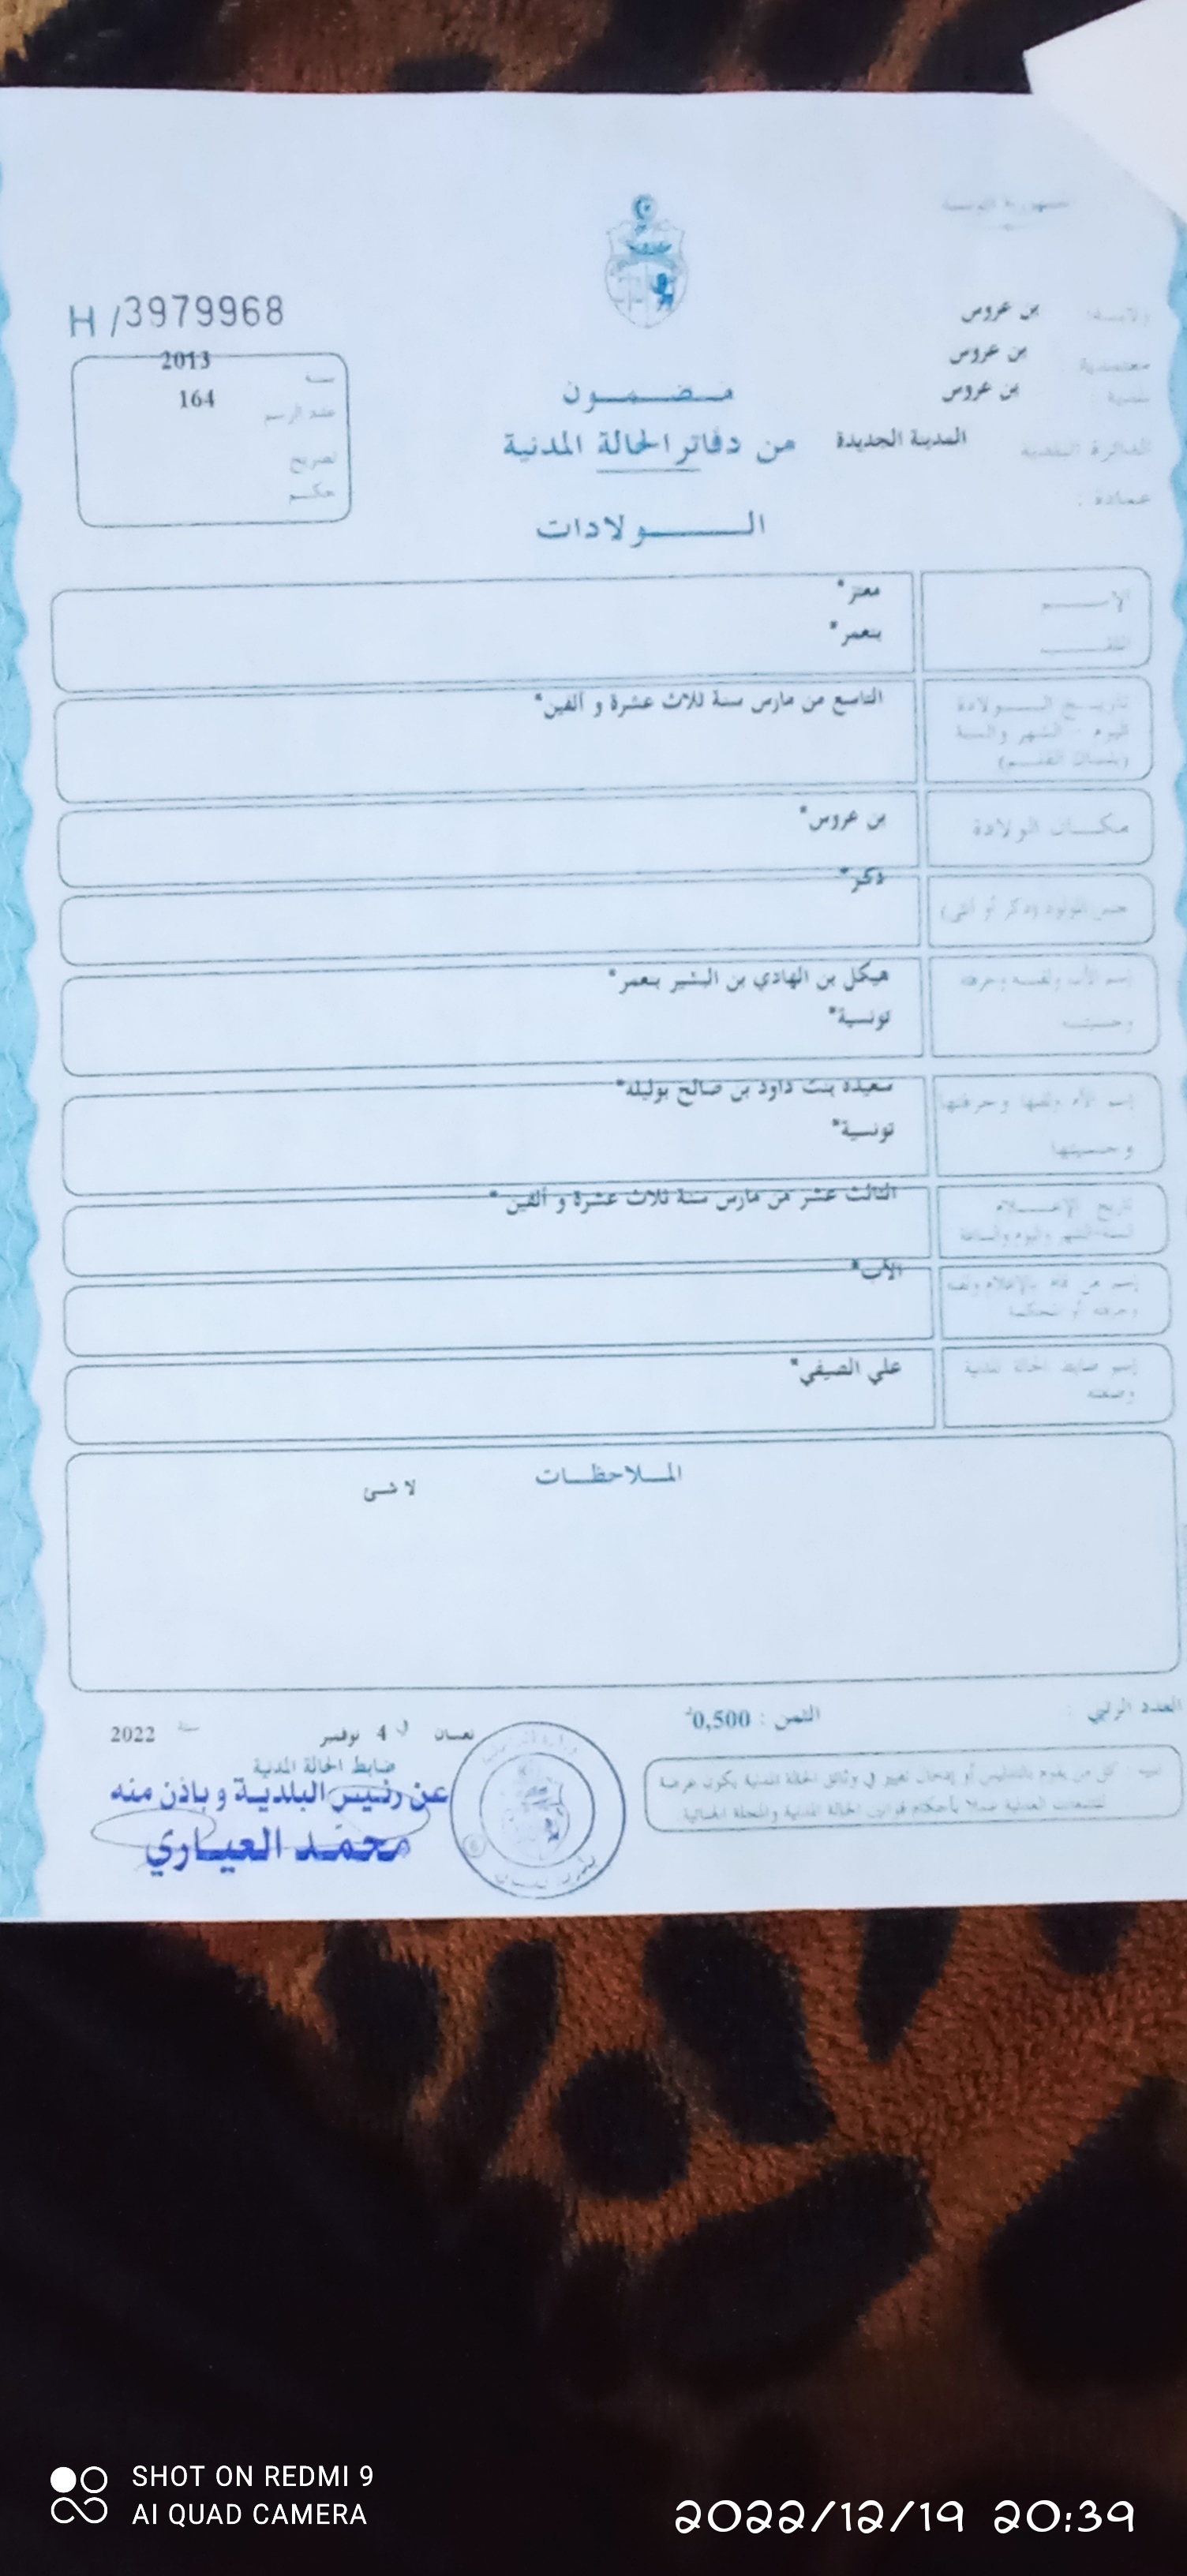 الجمهورية التونسية
H/3979968
ولايــة : بن عروس
معتمدية : بن عروس
بلدية : بن عروس
الدائرة البلدية المدينة الجديدة
عمادة :
سنة 2013
عدد الرسم 164
تصريح
حكم
مضمون
من دفاتر الحالة المدنية
الــولادات
الإســم معتز*
اللقــب بنعمر*
تاريــخ الــولادة التاسع من مارس سنة ثلاث عشرة و ألفين*
اليوم - الشهر والسنة
(بلسان القلــم)
مكــان الولادة بن عروس*
جنس المولود (ذكر أو أنثى) ذكر*
إسم الأب ولقبه وحرفته هيكل بن الهادي بن البشير بنعمر*
وجنسيته تونسية*
إسم الأم ولقبها وحرفتها سعيدة بنت داود بن صالح بوليلة*
وجنسيتها تونسية*
تاريخ الإعــلام الثالث عشر من مارس سنة ثلاث عشرة و ألفين *
السنة الشهر واليوم والساعة
إسم من قام بالإعلام ولقبه الأب*
وحرفته أو المحكمة
إسم ضابط الحالة المدنية علي الصيفي*
وصفته
الملاحظات
لا شئ
العدد الرتبي :
الثمن : 0,500د
تنبيه : كل من يقوم بالتدليس أو إدخال تغيير في وثائق الحالة المدنية يكون عرضة
للتتبعات العدلية عملا بأحكام قوانين الحالة المدنية والمجلة الجنائية
نعسان في 4 نوفمبر سنة 2022
ضابط الحالة المدنية
عن رئيس البلدية وباذن منه
محمد العياري
SHOT ON REDMI 9
AI QUAD CAMERA
2022/12/19 20:39